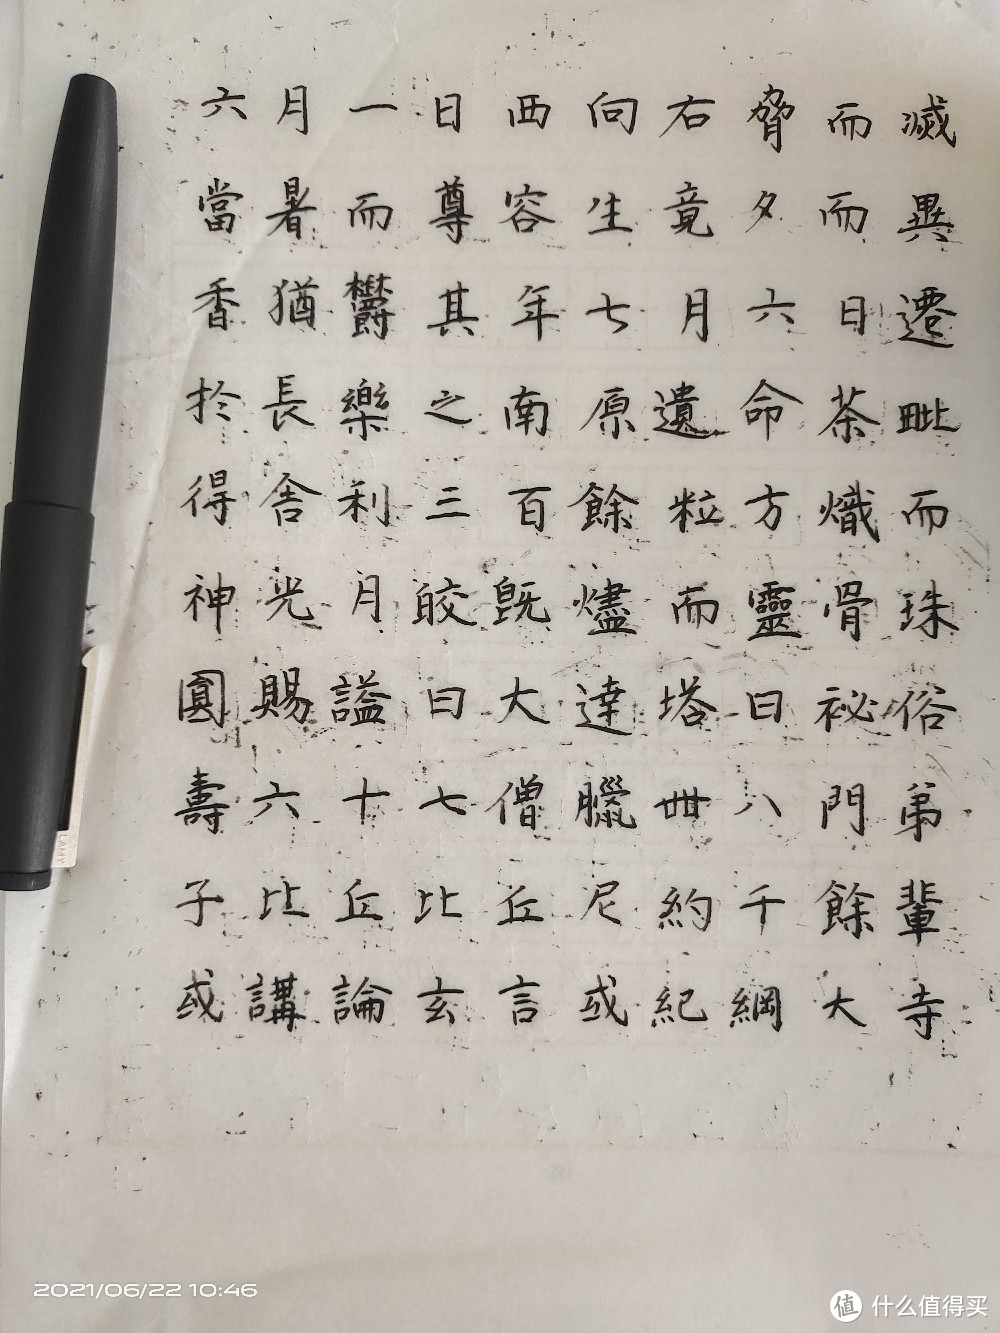 六月一日西向右脅而滅
當暑而尊容生竟夕而異
香猶欝其年七月六日遷
於長樂之南原遺命荼毗
得舍利三百餘粒方熾而
神光月皎既燼而靈骨珠
圓賜謚曰大達塔曰祕俗
壽六十七僧臘卌八門弟
子比丘比丘尼約千餘輩
或講論玄言或紀綱大寺
LAMY
2021/06/22 10:46
值 什么值得买